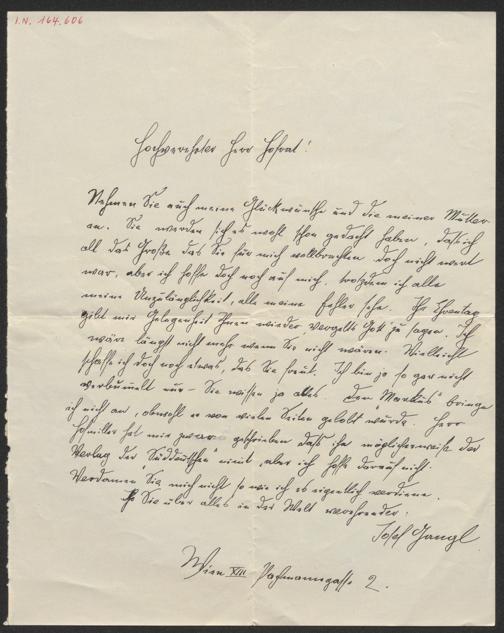 I.N. 164.606
Hochverehrter Herr Hofrat!
Nehmen Sie auch meine Glückwünsche und die meiner Mutter
an. Sie werden sich's wohl schon gedacht haben, dass ich
all das Große das Sie für mich vollbrachten doch nicht wert
war, aber ich hoffe doch noch auf mich, trotzdem ich alle
meine Unzulänglichkeit, alle meine Fehler sehe. Ihr Ehrentag
gibt mir Gelegenheit Ihnen wieder Vergelts Gott zu sagen. Ich
wäre längst nicht mehr wenn Sie nicht wären. Vielleicht
schaffe ich doch noch etwas, das Sie freut. Ich bin ja so gar nicht
verbummelt nur – Sie wissen ja alles. Den "Markus" bringe
ich nicht an, obwohl er von vielen Seiten gelobt wurde. Herr
Hofmiller hat mir zwar geschrieben dass ihn möglicherweise der
Verlag der "Süddeutschen" nimt, aber ich hoffe darauf nicht.
Verdamen Sie mich nicht so wie ich es eigentlich verdiene.
Ihr Sie über alles in der Welt verehrender
Josef Gangl
Wien XIII 2.